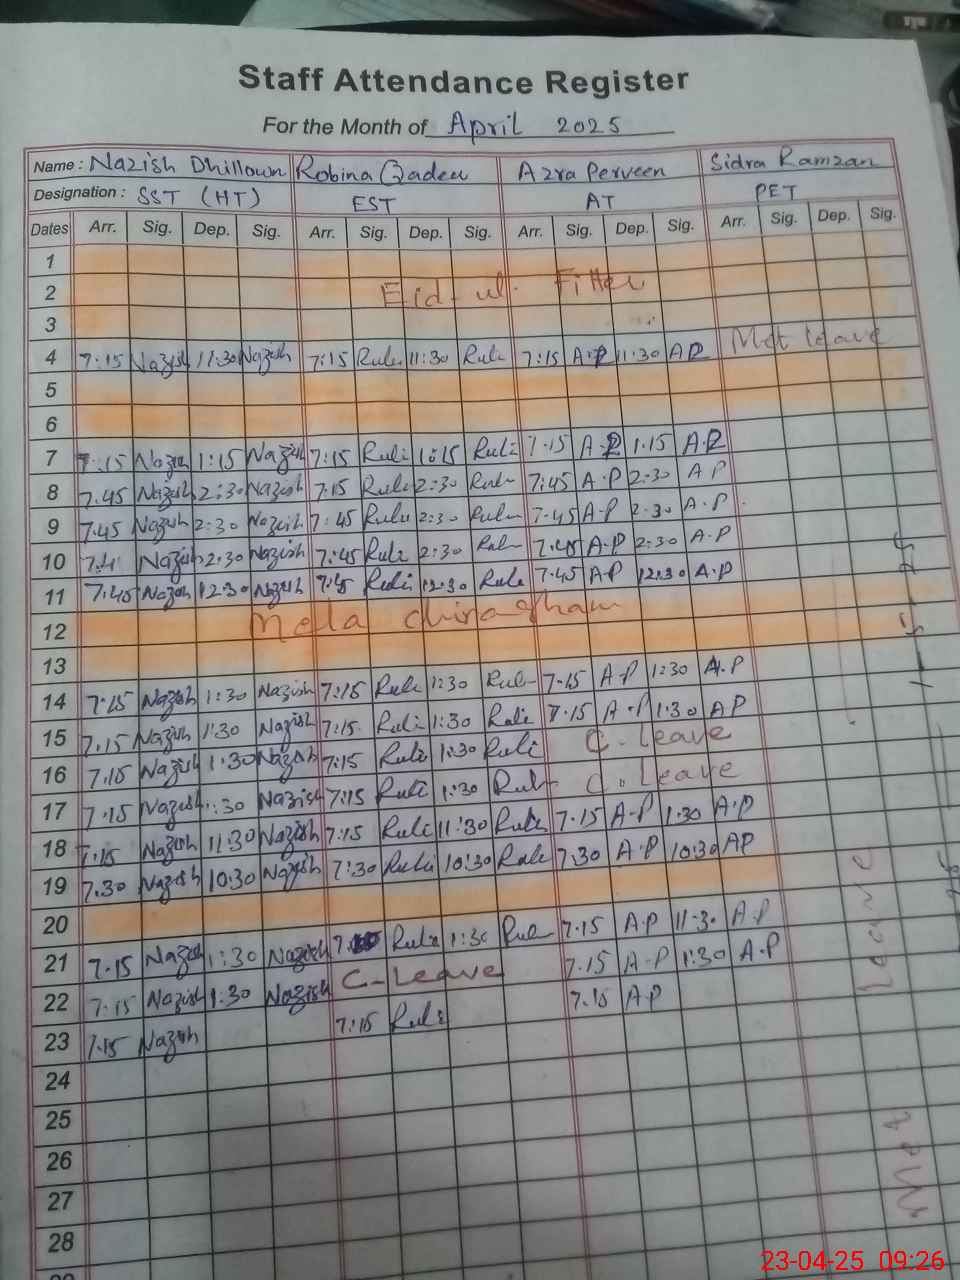 Staff Attendance Register
For the Month of April 2025
Name : Nazish Dhillown Robina Qadeer Azra Perveen Sidra Ramzan
Designation : SST (HT) EST AT PET
Dates Arr. Sig. Dep. Sig. Arr. Sig. Dep. Sig. Arr. Sig. Dep. Sig. Arr. Sig. Dep. Sig.
1
2 Eid-ul-Fitter
3
4 7:15 Nazish 11:30 Nazish 7:15 11:30 7:15 A.P 11:30 AP Met leave
5
6
7 7:15 Nazish 1:15 Nazish 7:15 Rubi 1:15 Rubi 7.15 A.P 1.15 A.P
8 7.45 Nazish 2:30 Nazish 7:15 2:30 7:45 A.P 2:30 AP
9 7.45 Nazish 2:30 Nazish 7:45 2:30 7.45 A.P 2.30 A.P
10 Nazish 2:30 Nazish 7:45 2:30 7.45 A.P 2:30 A.P
11 7:45 Nazish 12:30 Nazish 7:45 Rubi 12:30 7.45 A.P 12:30 A.P
12 Mela
13
14 7:15 Nazish 1:30 Nazish 7:15 Rubi 1:30 7.15 A.P 1:30 A.P
15 7.15 Nazish 1:30 Nazish 7:15. Rubi 1:30 Rubi 7.15 A.P 1.30 AP
16 7.15 Nazish 1:30 Nazish 7:15 Rubi 1:30 Rubi C.leave
17 7.15 Nazish :30 Nazish 7:15 Rubi 1:30 C.leave
18 7:15 Nazish 11:30 Nazish 7:15 Rubi 11:30 7.15 A.P 1.30 A.P
19 7.30 Nazish 10:30 Nazish 7:30 Rubi 10:30 7.30 A.P 10:30 AP
20
21 7.15 Nazish 1:30 Nazish 1:30 7.15 A.P 11.30 A.P
22 7:15 Nazish 1:30 Nazish C-Leave 7.15 A.P 1:30 A.P
23 7.15 Nazish 7:15 Rubi 7.15 A.P
24
25
26
27
28
Met Leave
23-04-25 09:26